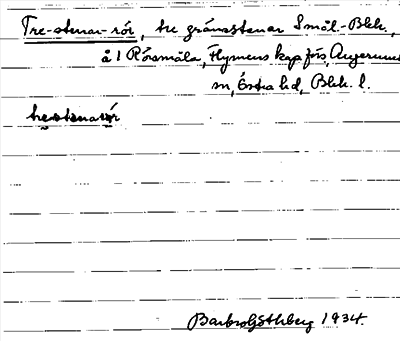 Tre-stenar-rör, tre gränsstenar Smål.-Blek.,
å 1 Rörsmåla, Flymens kap förs, Augerums
sn, Östra hd, Blek. l.
trestenarör
Barbro Göthberg 1934.